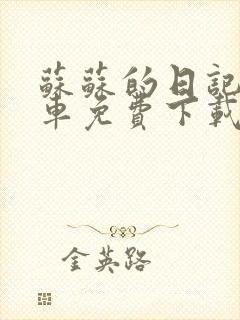 蘇蘇的日記
車免費下載
金英路